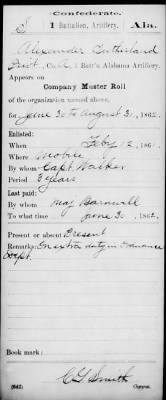 Confederate.
S 1 Battalion, Artillery. Ala.
Alexander Sutherland
Pvt., Co. A, 1 Batt'n Alabama Artillery.
Appears on
Company Muster Roll
of the organization named above,
for June 30 to August 31, 1862.
Enlisted:
When Feby 12, 186
Where Mobile
By whom Capt. Walker
Period 3 years
Last paid:
By whom Maj Barnwell
To what time June 30, 1862.
Present or absent Present
Remarks: On extra duty in Ordnance
Dept.
Book mark:
(642) C L Smith
Copyist.